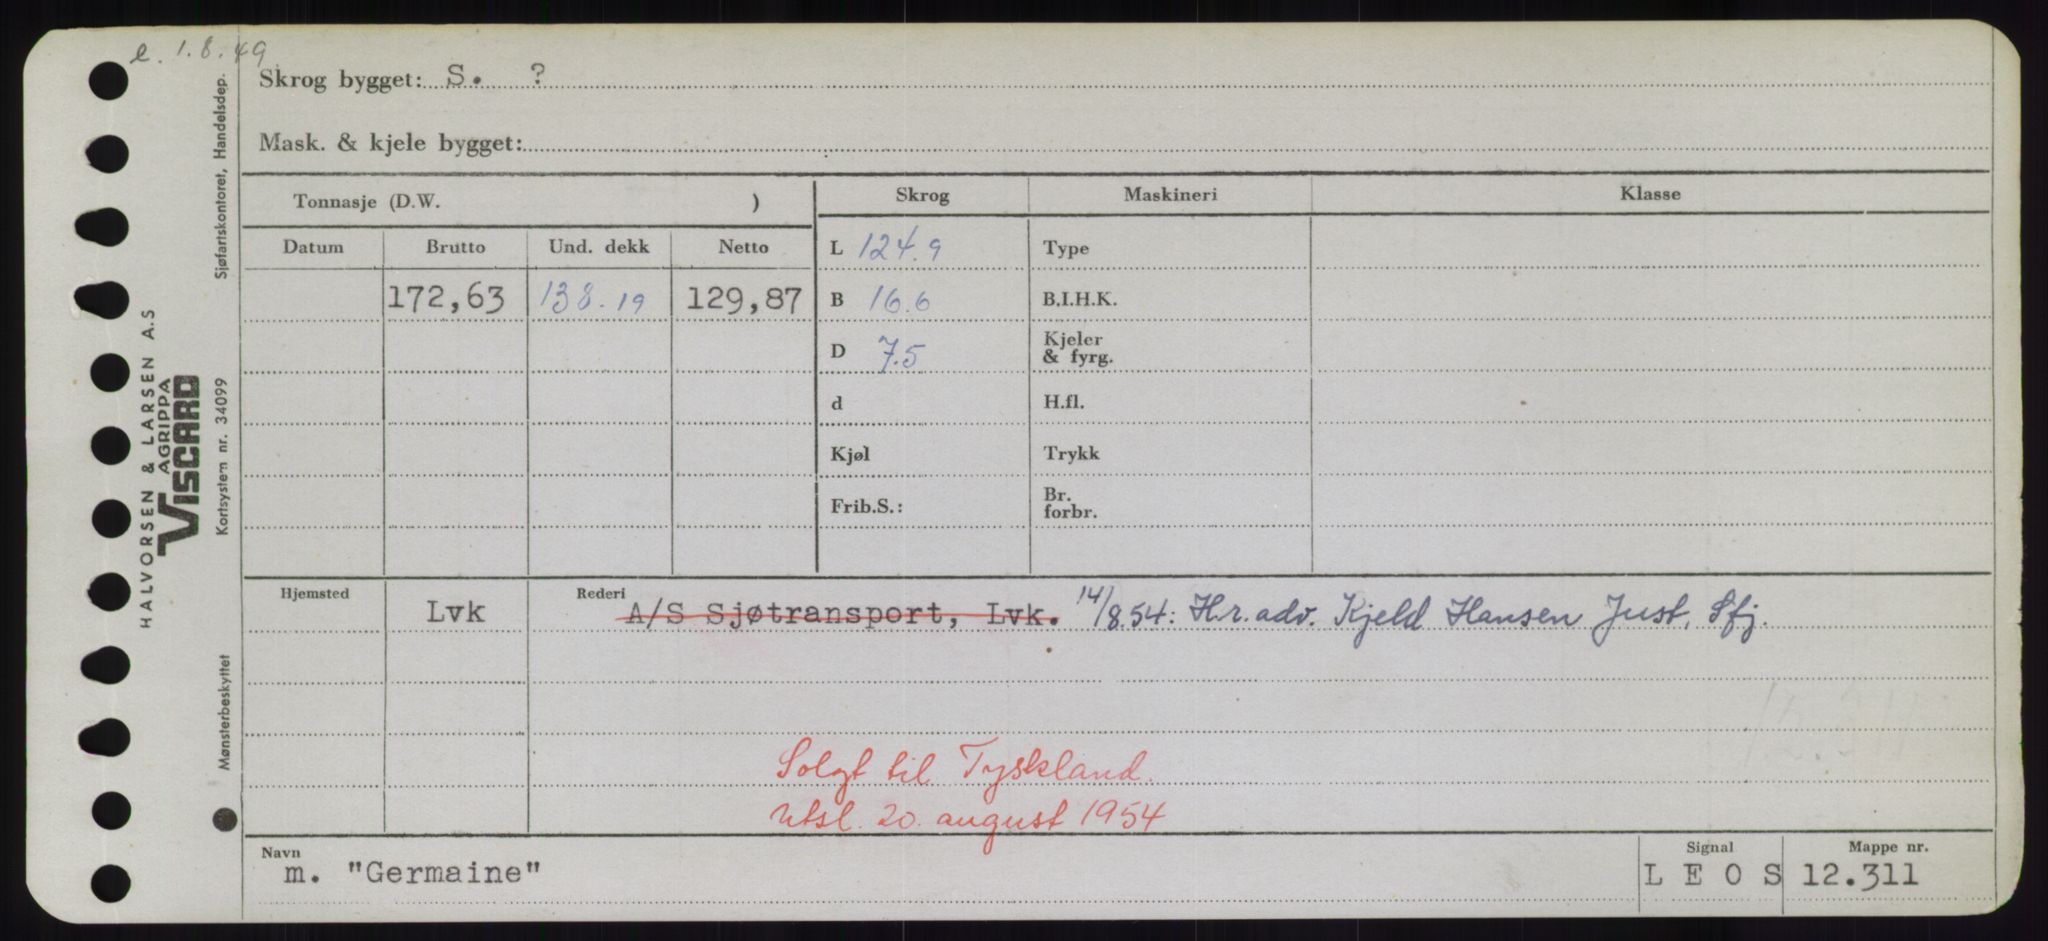 e. 1.8.49
Skrog bygget: S. ?
Mask. & kjele bygget:
Tonnasje (D.W. )
Skrog Maskineri Klasse
Datum Brutto Und. dekk Netto
L 124.9 Type
172,63 138.19 129,87
B 16.6 B.I.H.K.
D 7.5 Kjeler & fyrg.
d H.fl.
Kjøl Trykk
Frib.S.: Br. forbr.
Hjemsted Rederi
Lvk A/S Sjøtransport, Lvk. 14/8.54: H.r.adv. Kjeld Hansen Just, Sfj.
12.311
Solgt til Tyskland.
Utsl. 20. august 1954
Navn Signal Mappe nr.
m. "Germaine" L E O S 12.311
HALVORSEN & LARSEN A.S
AGRIPPA
VISCARD
Mønsterbeskyttet Kortsystem nr. 34099 Sjøfartskontoret, Handelsdep.